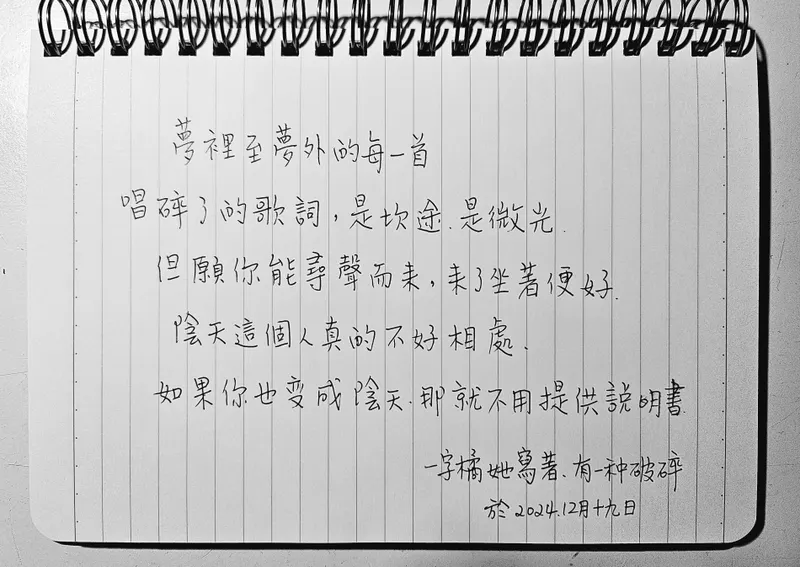 夢裡至夢外的每一首
唱碎了的歌詞，是坎途.是微光.
但願你能尋聲而来，来了坐著便好.
陰天這個人真的不好相處.
如果你也变成陰天.那就不用提供說明書
一字橘她寫著.有一种破碎
於2024.12月十九日